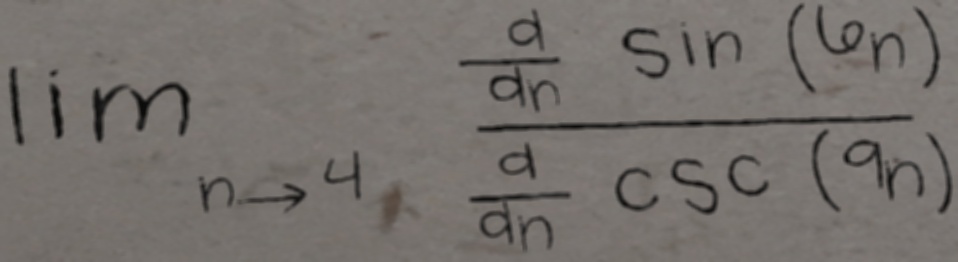 lim n→4 \frac{\frac{d}{dn} sin (6n)}{\frac{d}{dn} csc (9n)}